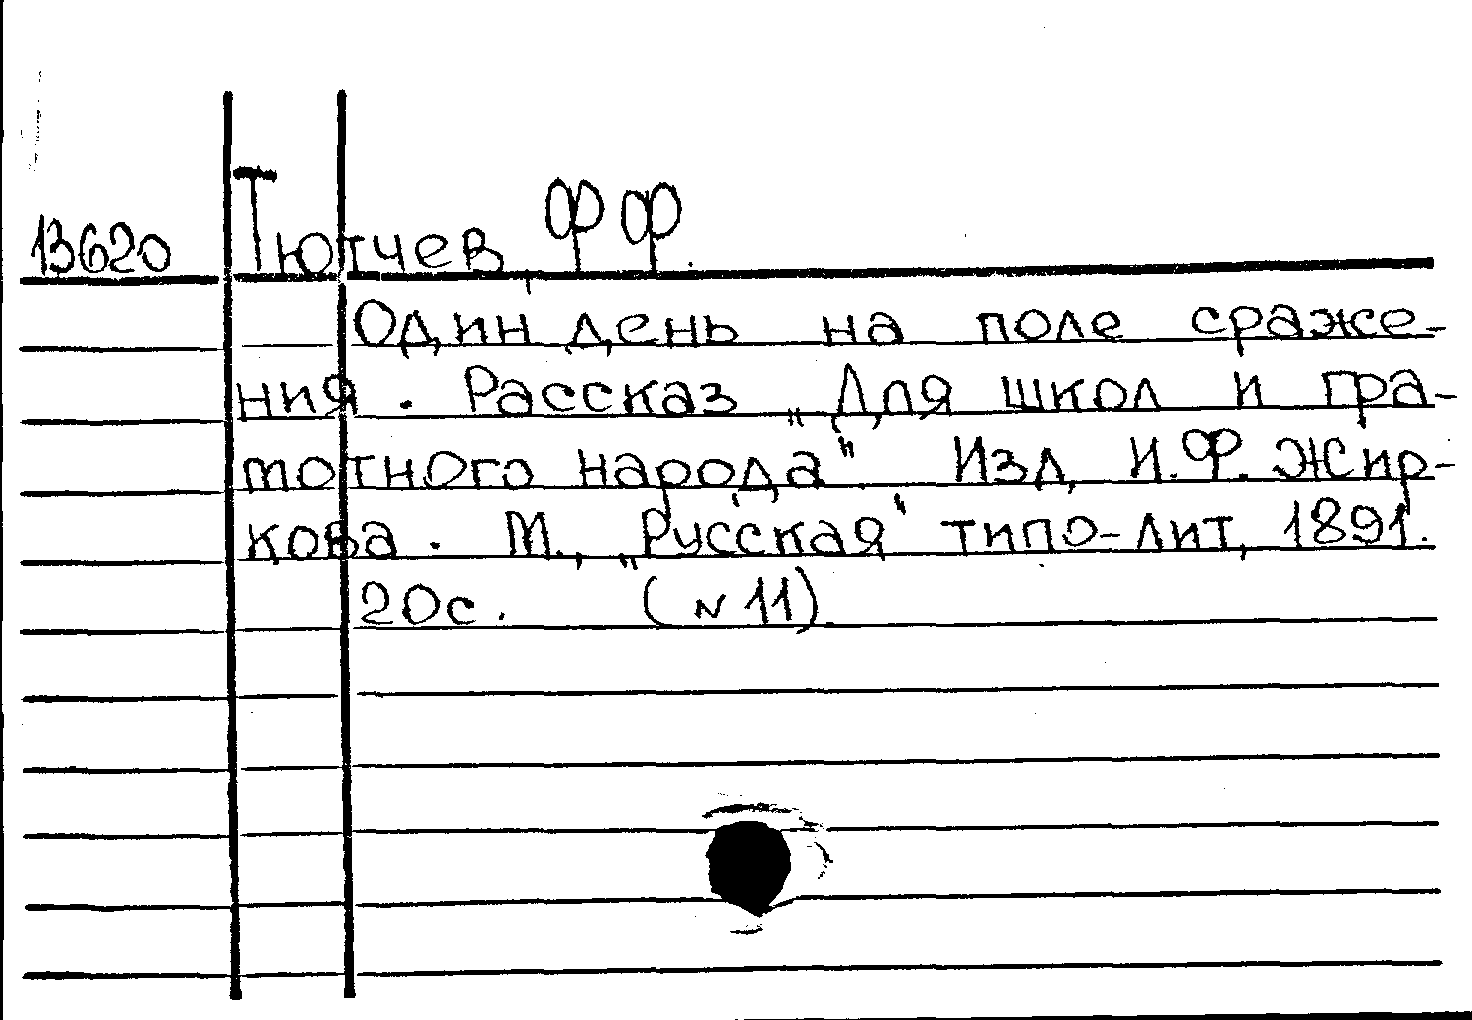 13620 Тютчев ФФ.
Один день на поле сраже-
ния. Рассказ „Для школ и гра-
мотного народа". Изд. И.Ф. Жир-
кова. М., „Русская" типо-лит, 1891.
20с. (N 11).